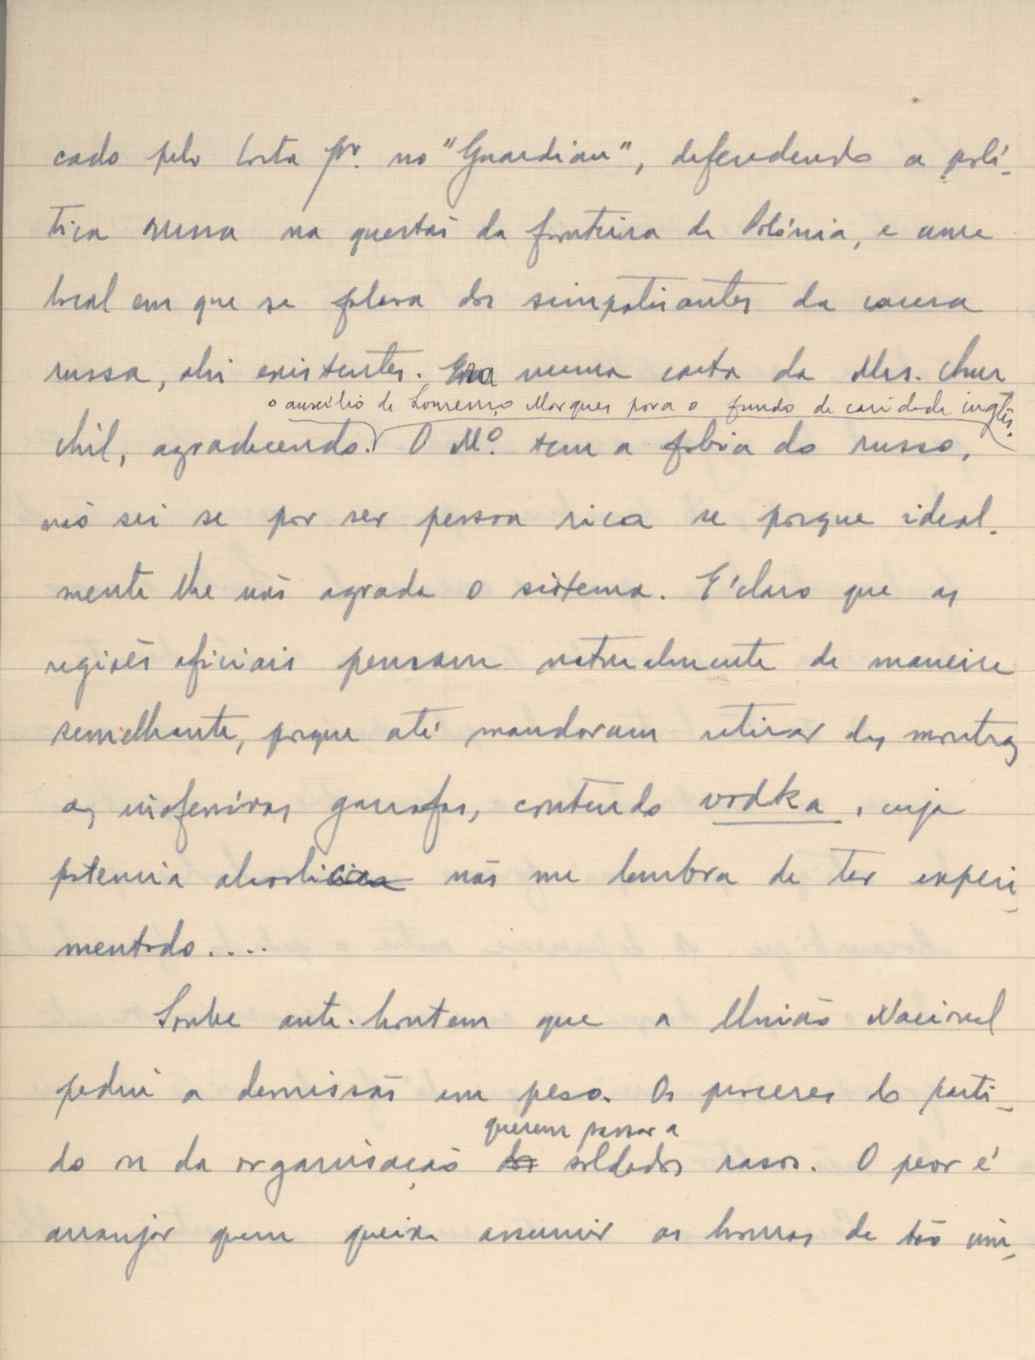 cado pelo Costa Jor. no "Guardian", defendendo a polí-
tica russa na questão da fronteira da Polónia, e uma
local em que se falava dos simpatisantes da causa
russa, ahi existentes. Era numa carta da Mrs. Chur
o auxilio de Lourenço Marques para o fundo de caridade inglês.
chil, agradecendo. O Mº. tem a fobia do russo,
não sei se por ser pessoa rica se porque ideal-
mente lhe não agrada o sistema. E' claro que as
regiões oficiais pensam naturalmente de maneira
semelhante, porque até mandaram retirar das montras
as inofensivas garrafas, contendo vodka, cuja
potencia alcoolica não me lembra de ter experi-
mentado....
Soube ante-hontem que a União Nacional
pediu a demissão em peso. Os proceres do parti-
querem passar a
do ou da organisação dos soldados rasos. O peor é
arranjar quem queira assumir as honras de tão im-